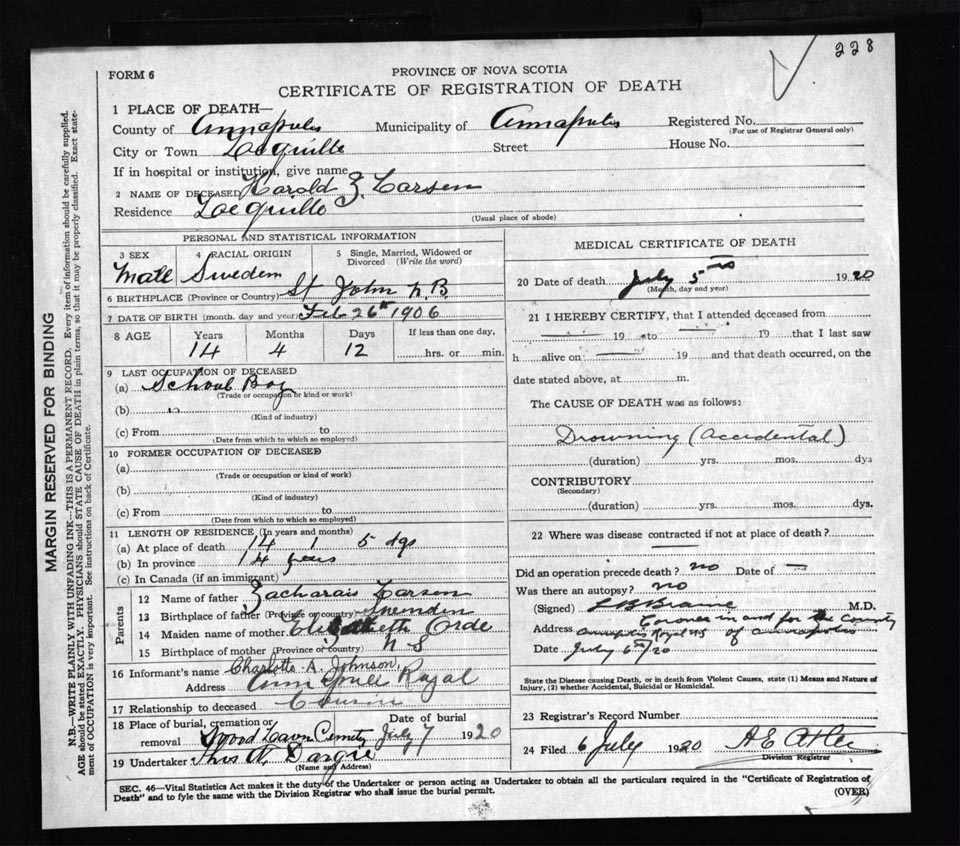 228
FORM 6
PROVINCE OF NOVA SCOTIA
CERTIFICATE OF REGISTRATION OF DEATH
1 PLACE OF DEATH—
County of Annapolis Municipality of Annapolis Registered No.
(For use of Registrar General only)
City or Town Lequille Street House No.
If in hospital or institution, give name
2 NAME OF DECEASED Harold Z. Larsen
Residence Lequille
(Usual place of abode)
PERSONAL AND STATISTICAL INFORMATION
3 SEX 4 RACIAL ORIGIN 5 Single, Married, Widowed or Divorced (Write the word)
Male Sweden
6 BIRTHPLACE (Province or Country) St John N.B.
7 DATE OF BIRTH (month, day and year) Feb 26th 1906
8 AGE Years Months Days If less than one day,
14 4 12 hrs. or min.
9 LAST OCCUPATION OF DECEASED
(a) School Boy
(Trade or occupation or kind or work)
(b)
(Kind of industry)
(c) From to
(Date from which to which so employed)
10 FORMER OCCUPATION OF DECEASED
(a)
(Trade or occupation or kind of work)
(b)
(Kind of industry)
(c) From to
(Date from which to which so employed)
11 LENGTH OF RESIDENCE (In years and months)
(a) At place of death 14 1 5 dys
(b) In province 14 years
(c) In Canada (if an immigrant)
Parents
12 Name of father Zacharais Larsen
13 Birthplace of father (Province or country) Sweden
14 Maiden name of mother Elizabeth Orde
15 Birthplace of mother (Province or country) N S
16 Informant's name Charlotte A. Johnson,
Address Annapolis Royal
17 Relationship to deceased Cousin
18 Place of burial, cremation or removal Wood Lawn Cemetry Date of burial July 7 1920
19 Undertaker Thos A. Dargie
(Name and Address)
MEDICAL CERTIFICATE OF DEATH
20 Date of death July 5th 1920
(Month, day and year)
21 I HEREBY CERTIFY, that I attended deceased from
19 to 19 that I last saw
h alive on 19 and that death occurred, on the
date stated above, at m.
The CAUSE OF DEATH was as follows:
Drowning (accidental)
(duration) yrs. mos. dys
CONTRIBUTORY
(Secondary)
(duration) yrs. mos. dys.
22 Where was disease contracted if not at place of death?
Did an operation precede death? no Date of —
Was there an autopsy? no
(Signed) L B Braine M.D.
Coroner in and for the County
Address Annapolis Royal NS of Annapolis
Date July 6th/20
State the Disease causing Death, or in death from Violent Causes, state (1) Means and Nature of
Injury, (2) whether Accidental, Suicidal or Homicidal.
23 Registrar's Record Number
24 Filed 6 July 1920 A E
Division Registrar
SEC. 46—Vital Statistics Act makes it the duty of the Undertaker or person acting as Undertaker to obtain all the particulars required in the "Certificate of Registration of
Death" and to fyle the same with the Division Registrar who shall issue the burial permit.
(OVER)
MARGIN RESERVED FOR BINDING
N.B.—WRITE PLAINLY WITH UNFADING INK—THIS IS A PERMANENT RECORD. Every item of information should be carefully supplied.
AGE should be stated EXACTLY. PHYSICIANS should STATE CAUSE OF DEATH in plain terms, so that it may be properly classified. Exact state-
ment of OCCUPATION is very important. See instructions on back of Certificate.